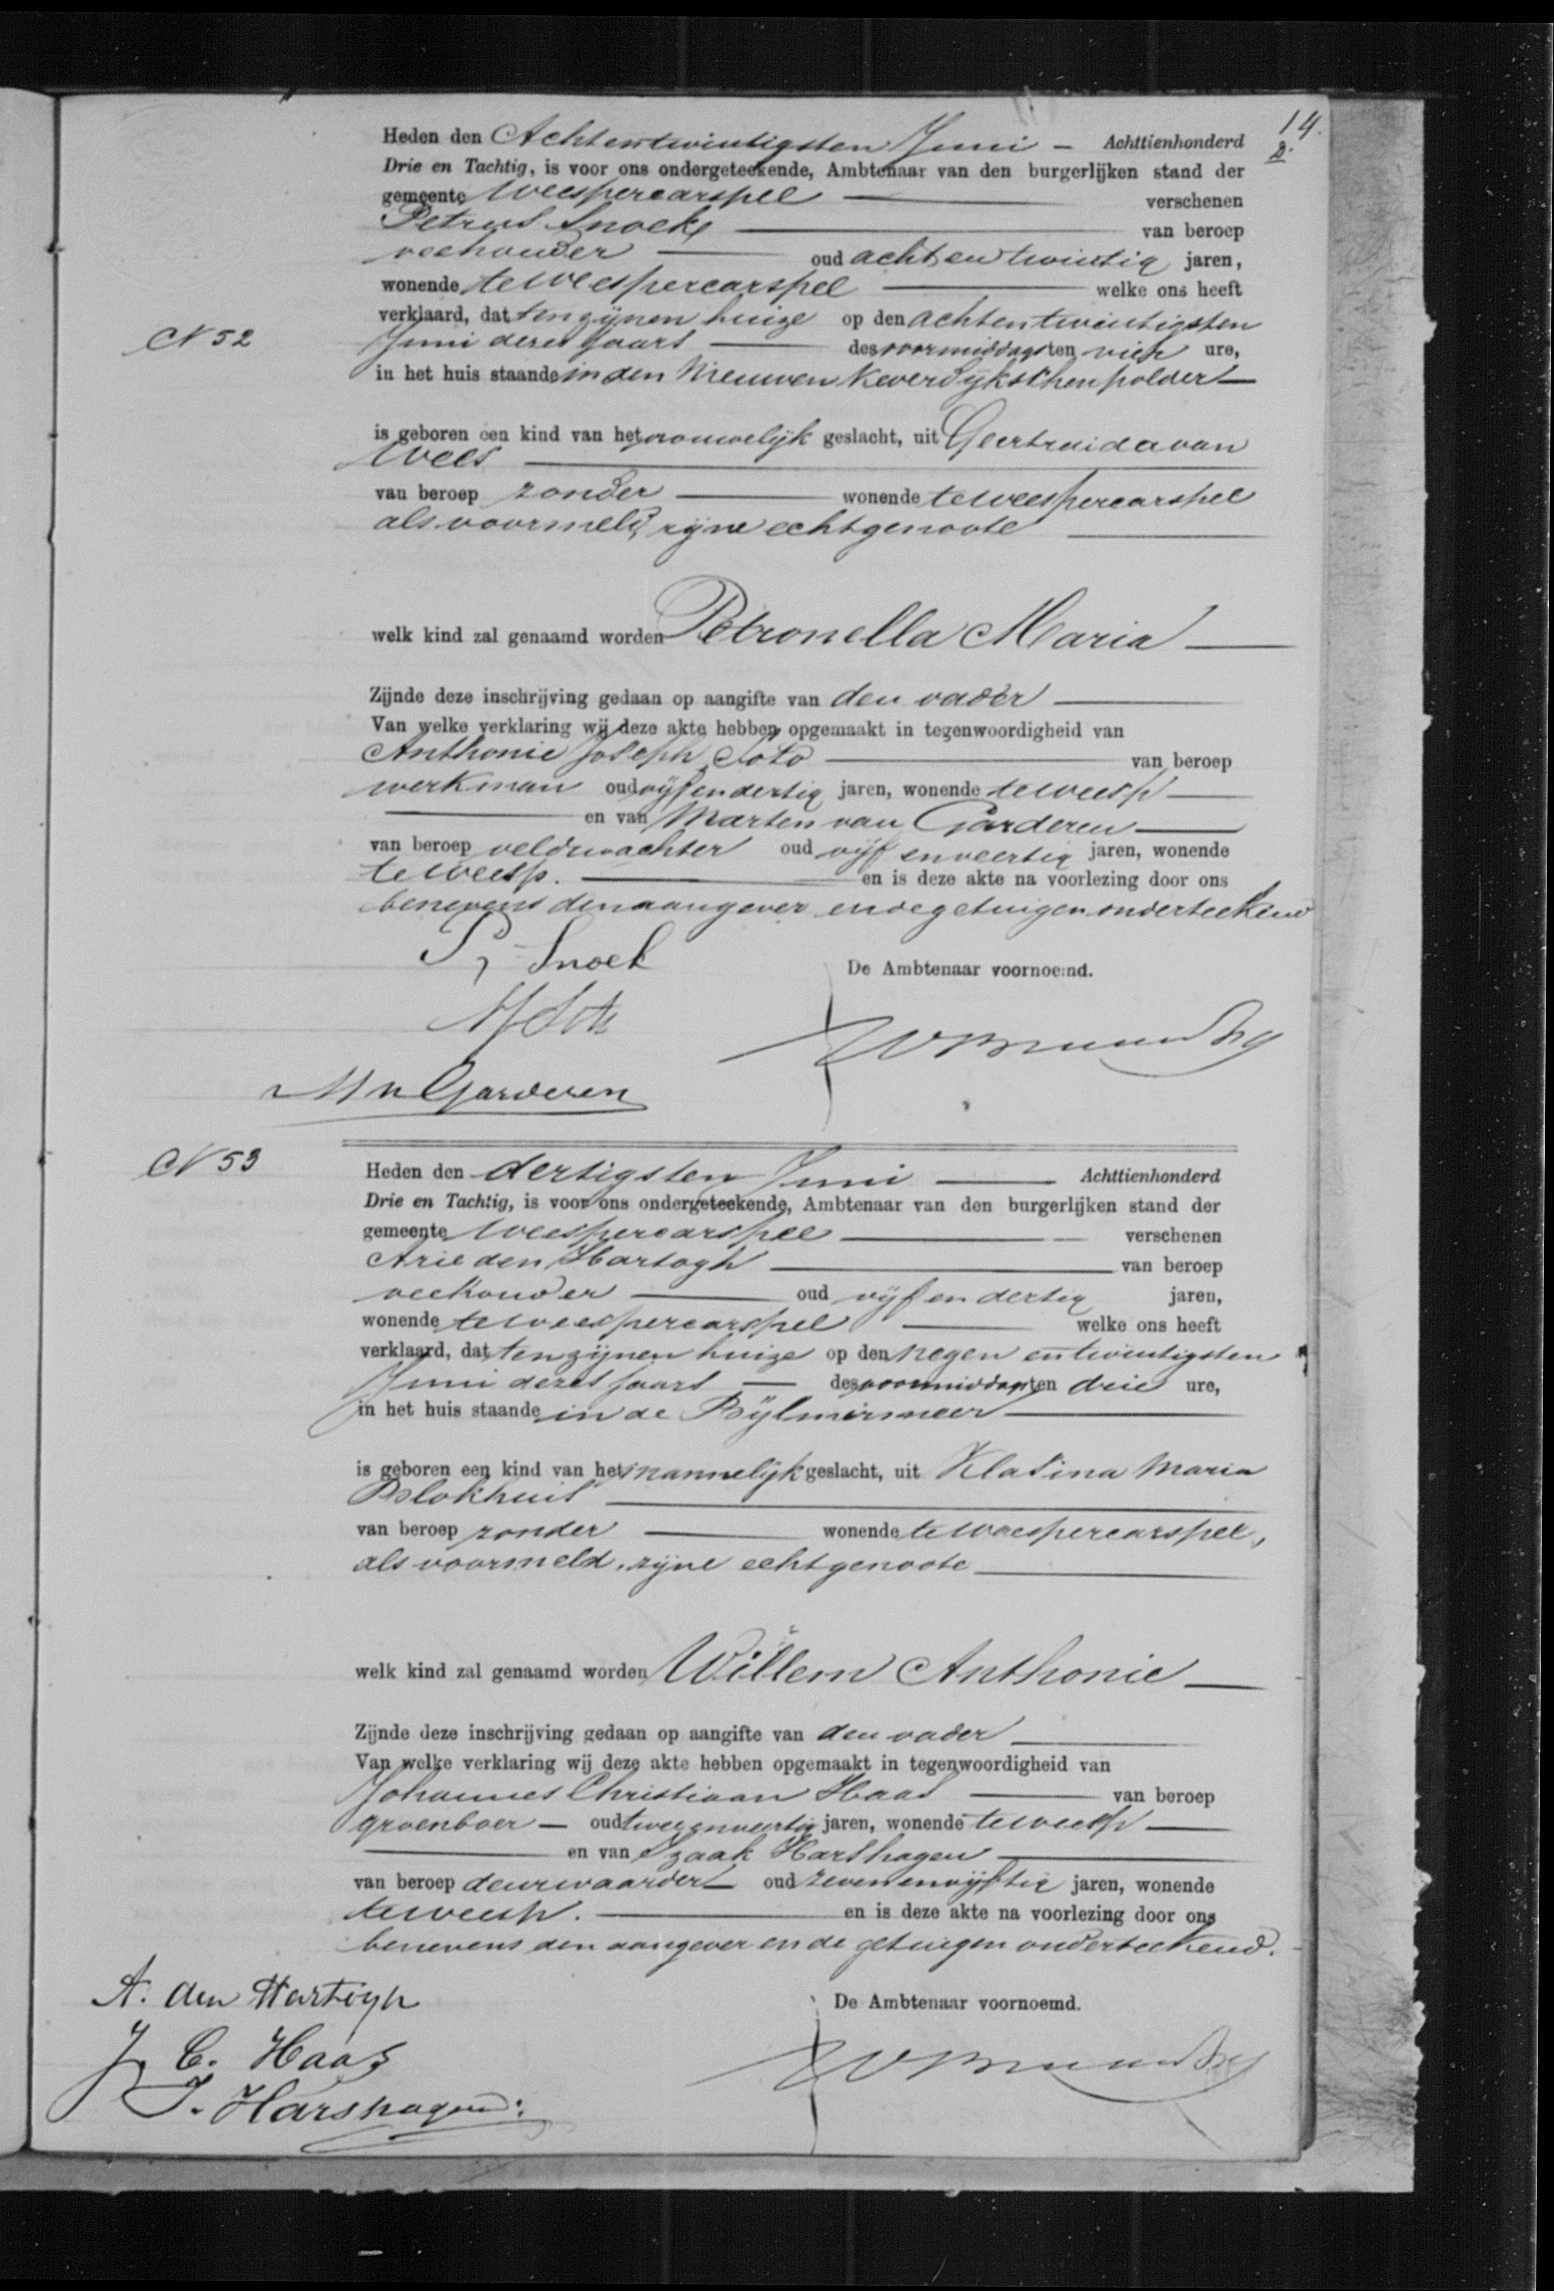 14.
2.
Heden den Achtentwintigsten Juni — Achttienhonderd
Drie en Tachtig, is voor ons ondergeteekende, Ambtenaar van den burgerlijken stand der
gemeente Weespercarspel verschenen
Petrus Snoek van beroep
veehouder oud achtentwintig jaren,
wonende te Weespercarspel welke ons heeft
verklaard, dat ten zijnen huize op den achtentwintigsten
N 52
Juni dezes jaars des voormiddags ten vier ure,
in het huis staande in den Nieuwen Keverdijkschenpolder
is geboren een kind van het vrouwelijk geslacht, uit Geertruida van
Wees
van beroep zonder wonende te Weespercarspel
als voormeld, zijne echtgenoote
welk kind zal genaamd worden Petronella Maria
Zijnde deze inschrijving gedaan op aangifte van den vader
Van welke verklaring wij deze akte hebben opgemaakt in tegenwoordigheid van
Anthonie Joseph Soto van beroep
werkman oud vijfendertig jaren, wonende te Weesp
en van Marten van Garderen
van beroep veldwachter oud vijfenveertig jaren, wonende
te Weesp. en is deze akte na voorlezing door ons
benevens den aangever en de getuigen onderteekend
P. Snoek
De Ambtenaar voornoemd.
M v Garderen
N 53
Heden den dertigsten Juni Achttienhonderd
Drie en Tachtig, is voor ons ondergeteekende, Ambtenaar van den burgerlijken stand der
gemeente Weespercarspel verschenen
Arie den Hartogh van beroep
veehouder oud vijfendertig jaren,
wonende te Weespercarspel welke ons heeft
verklaard, dat ten zijnen huize op den negen entwintigsten
Juni dezes jaars — des voormiddags ten drie ure,
in het huis staande in de Bijlmirmeer
is geboren een kind van het mannelijk geslacht, uit Klasina Maria
Blokhuis
van beroep zonder wonende te Weespercarspel,
als voormeld, zijne echtgenoote
welk kind zal genaamd worden Willem Anthonie
Zijnde deze inschrijving gedaan op aangifte van den vader
Van welke verklaring wij deze akte hebben opgemaakt in tegenwoordigheid van
Johannes Christiaan Haas van beroep
groenboer — oud tweeenveertig jaren, wonende te Weesp
en van Izaak Harshagen
van beroep deurwaarder oud zevenenvijftig jaren, wonende
te Weesp. en is deze akte na voorlezing door ons
benevens den aangever en de getuigen onderteekend.
A. den Hartogh
De Ambtenaar voornoemd.
J. C. Haas
I. Harshagen.